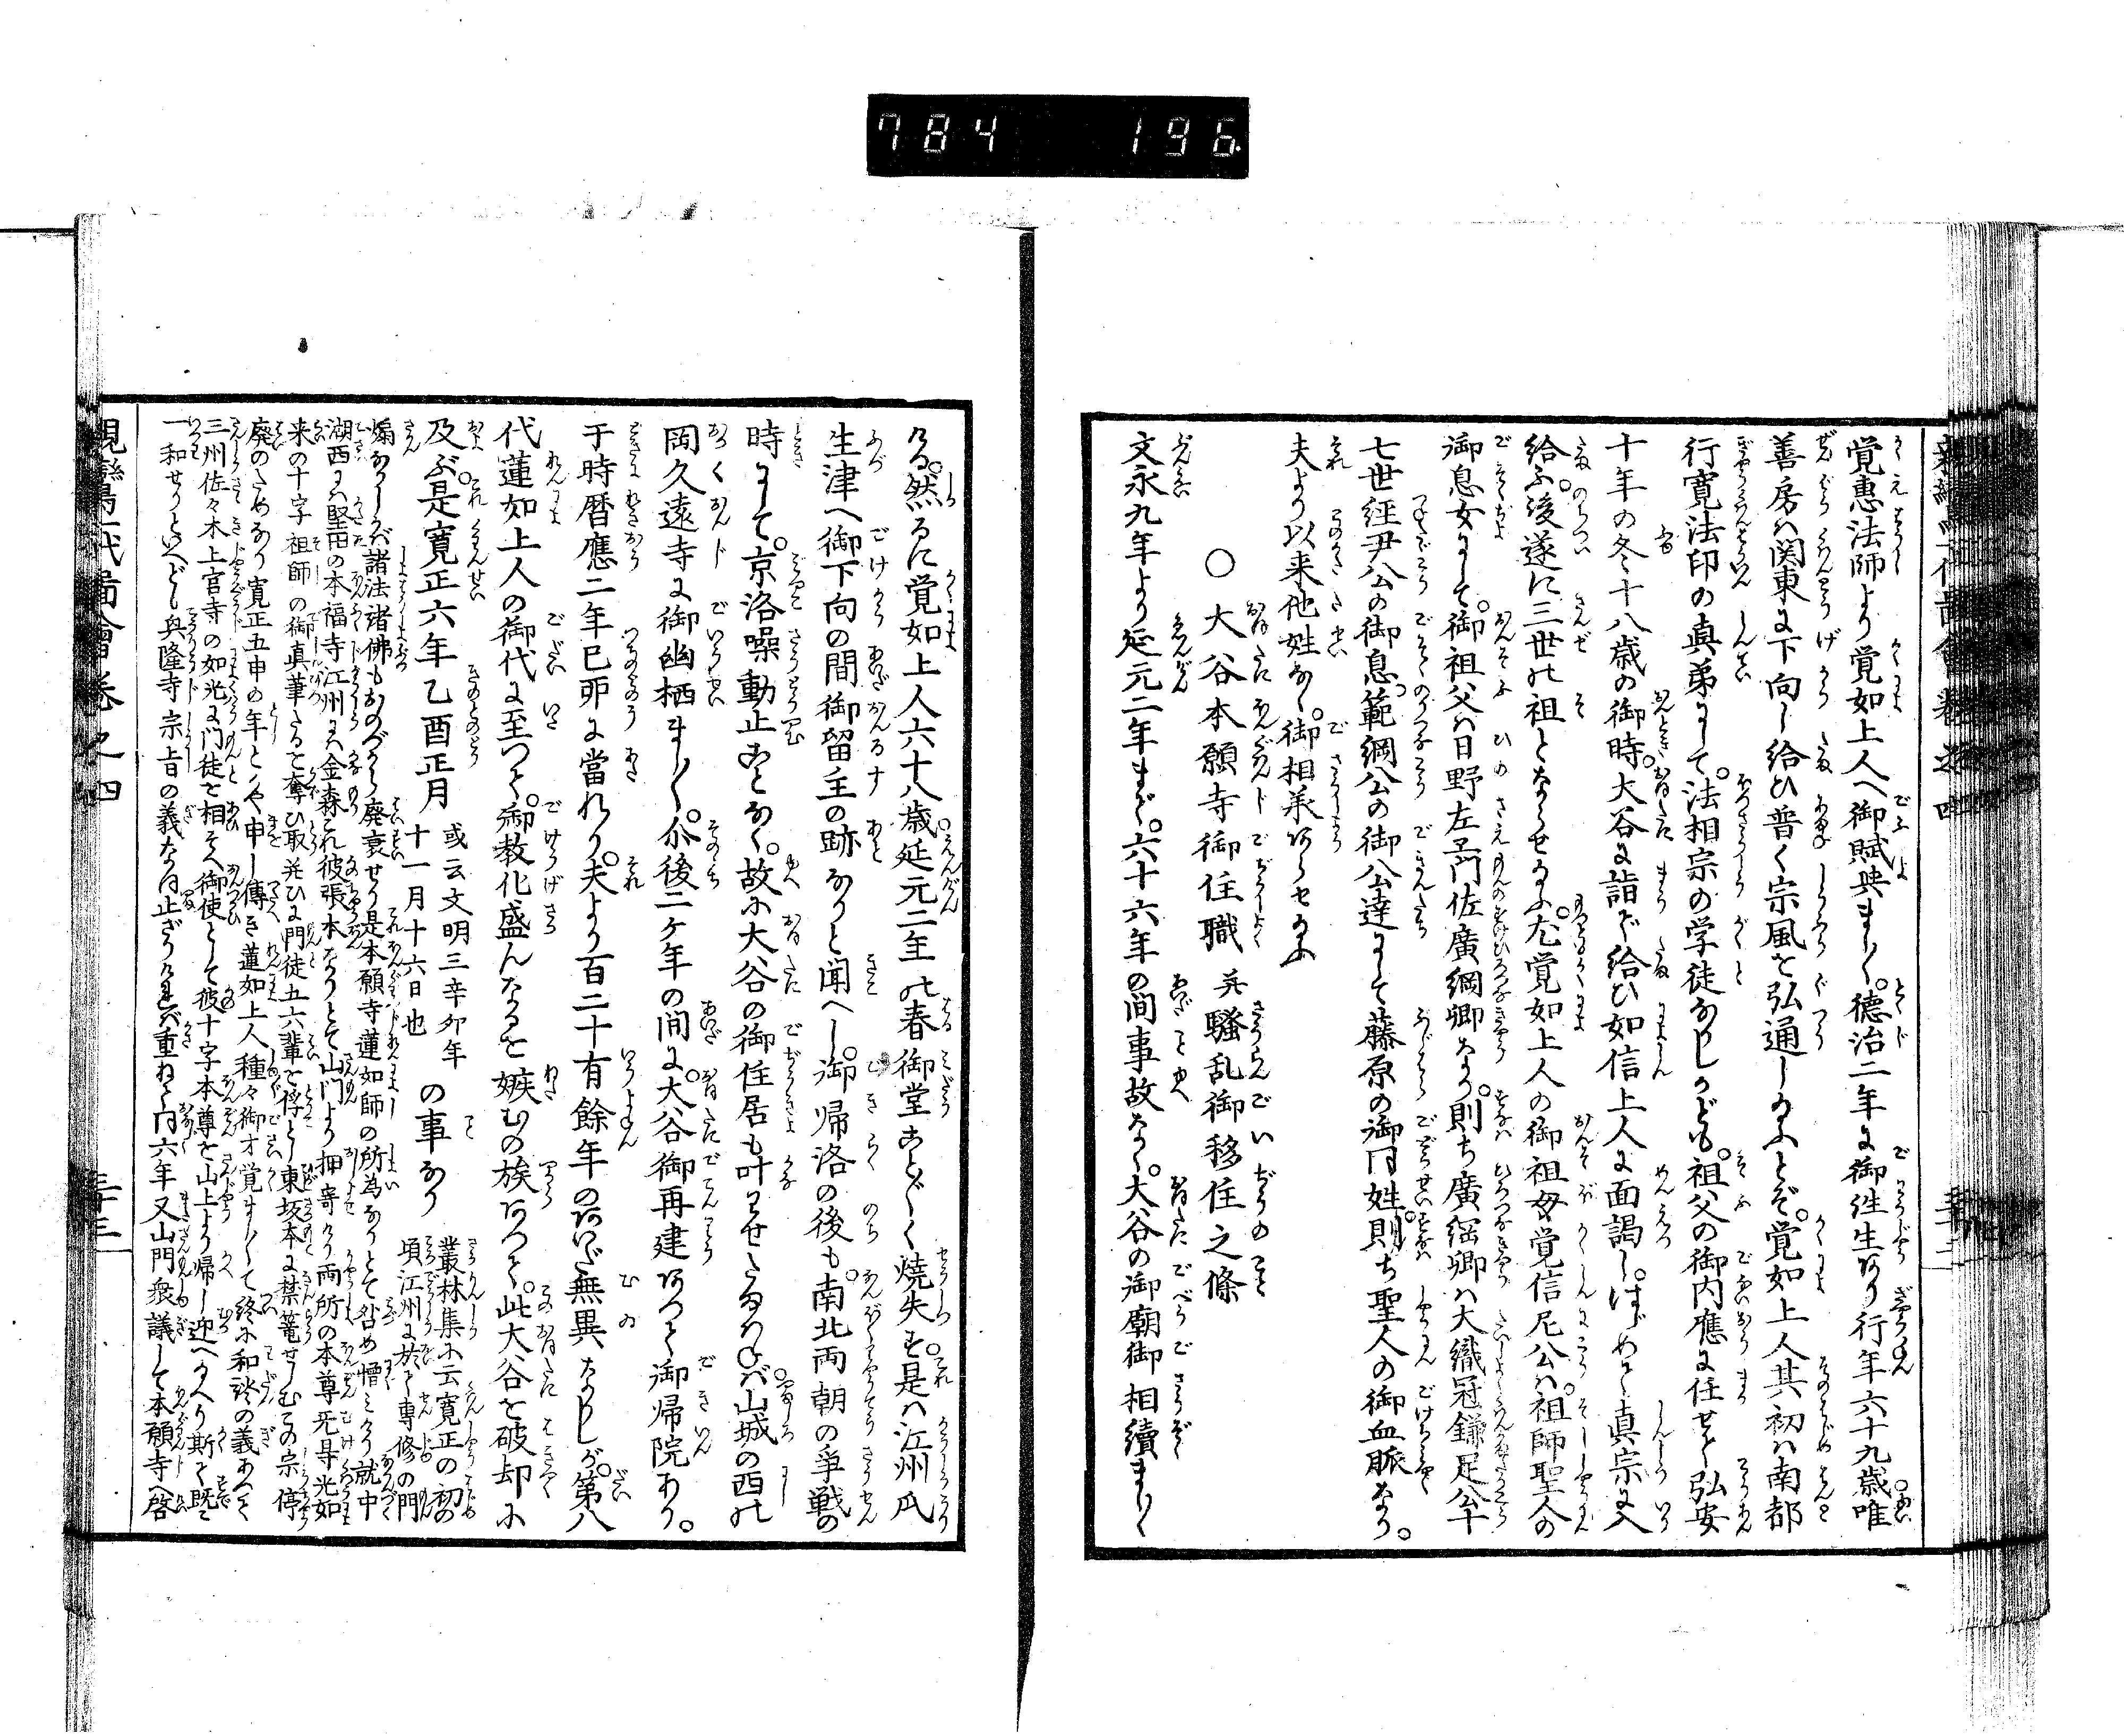 784 196
覚惠法師より覚如上人へ御賦与まします。徳治二年に御往生あり行年六十九歳唯
善房ハ関東に下向し給ひ普く宗風を弘通し給ふとぞ。覚如上人其初ハ南都
行寛法印の真弟にして。法相宗の学徒なりしかども。祖父の御内應に任せて弘安
十年の冬十八歳の御時。大谷に詣で給ひ如信上人に面謁し。はじめて真宗に入
給ふ。後遂に三世の祖とならせ給ふ。尤覚如上人の御祖母覚信尼公ハ。祖師聖人の
御息女にして。御祖父ハ日野左衛門佐廣綱卿なり。則ち廣綱卿ハ大織冠鎌足公十
七世経尹公の御息。範綱公の御公達にして藤原の御同姓。則ち聖人の御血脈なり。
夫より以来他姓なく。御相承ましまさせ給ふ
○大谷本願寺御住職并騒乱御移住之條
文永九年より延元二年まで。六十六年の間事故なく。大谷の御廟御相續まします
ける。然るに覚如上人六十八歳。延元二年の春御堂ことごとく焼失す。是ハ江州瓜
生津へ御下向の間御留主の跡なりと聞へし。御帰洛の後も。南北両朝の争戦の
時にして。京洛噪動止ことなく。故に大谷の御住居も叶ハせたまハねバ。山城の西の
岡久遠寺に御幽栖まします。尒後二ヶ年の間に。大谷御再建ありて御帰院あり。
于時暦應二年已卯に當れり。夫より百二十有餘年のあいだ無異なりしが。第八
代蓮如上人の御代に至つて。御教化盛んなるを嫉むの族ありて。此大谷を破却に
及ぶ。是寛正六年乙酉正月
或云文明三辛卯年
十一月十六日也
の事なり
叢林集に云寛正の初の
頃江州に於て専修の門
煽なりしかば諸法諸佛もおのづから廃衰せり是本願寺蓮如師の所為なりとて咎め憎ミけり就中
湖西にハ堅田の本福寺江州にハ金森これ彼張本なりとて山門より押寄けり両所の本尊无㝵光如
来の十字祖師の御真筆たるを奪ひ取并ひに門徒五六輩を俘とし東坂本に禁篭せしむ この宗停
廃のためなり寛正五申の年とかや申し傳き蓮如上人種々御才覚まして終に和談の義あつて
三州佐々木上宮寺の如光に門徒を相そへ御使として彼十字本尊を山上より帰し迎へたり斯て既に
一和せりといへども興隆寺宗旨の義なほ止ざりけれバ重ねて同六年又山門衆議して本願寺へ啓
親鸞一代圖會巻之四